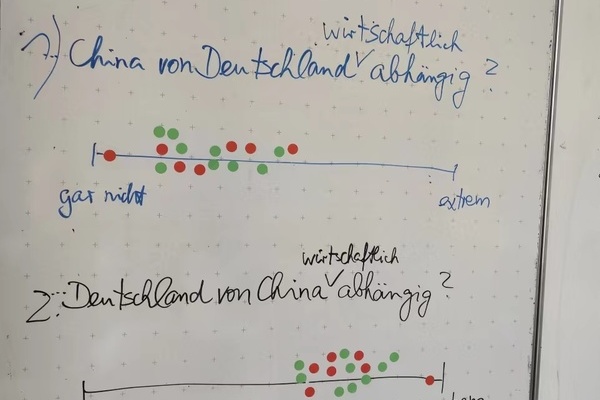 1) China von Deutschland wirtschaftlich abhängig?
gar nicht
extrem
2. Deutschland von China wirtschaftlich abhängig?